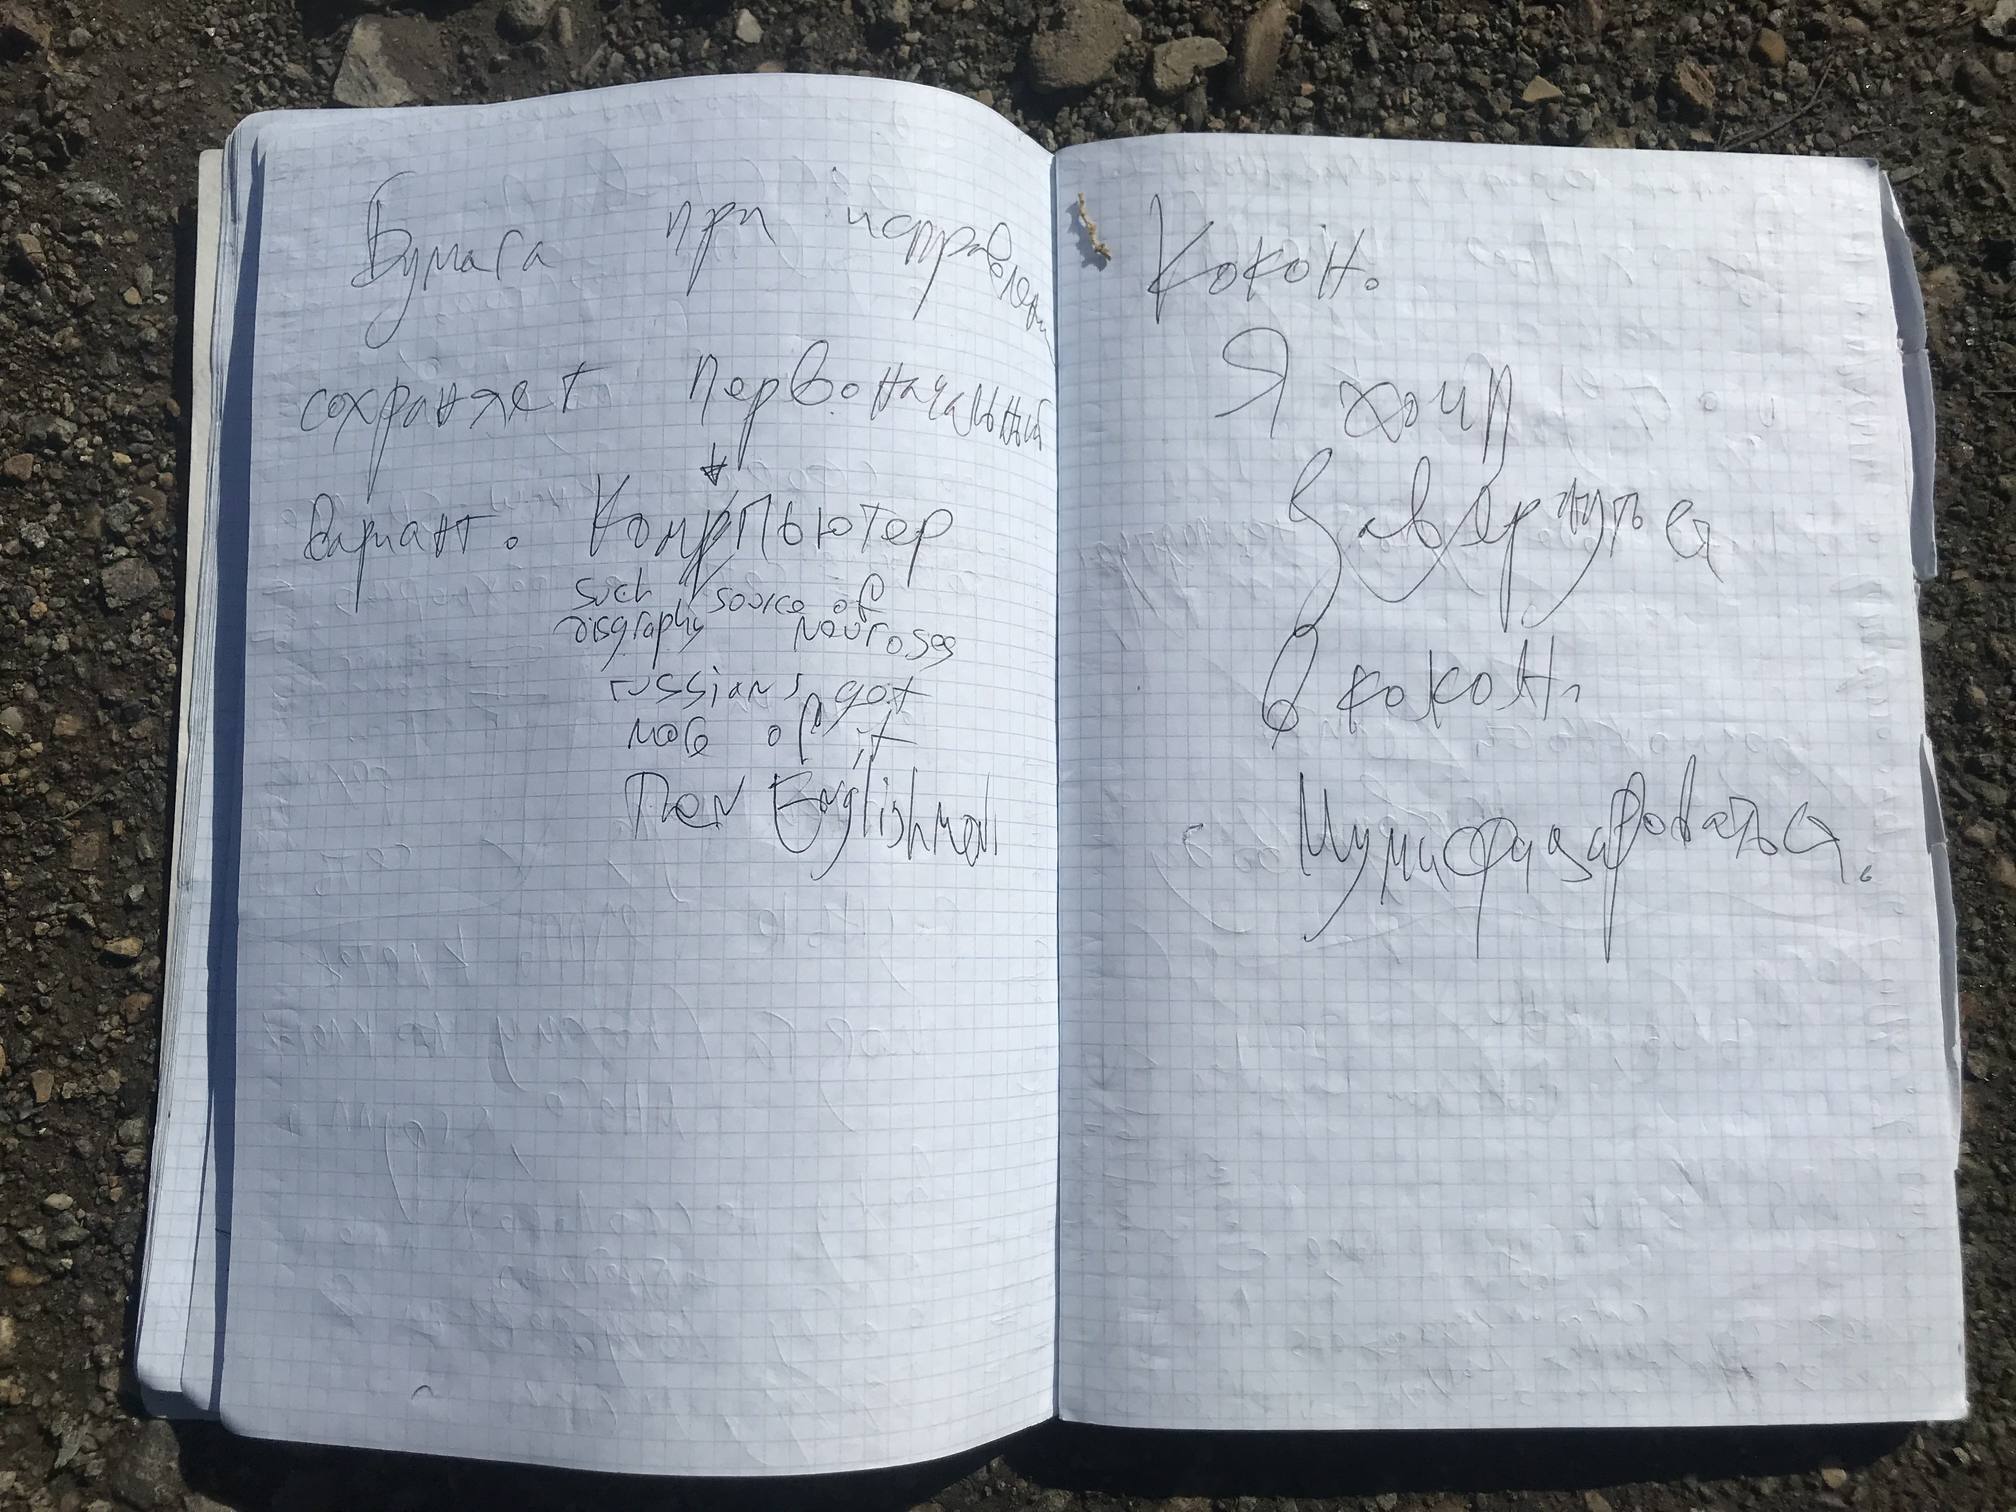 Бумага при исправлении
сохраняет первоначальный
вариант. Компьютер
such source of
disgraphy neuroses
russians got
more of it
Then Englishman
Кокон.
Я хочу
завернуться
в кокон.
Мумифизироваться.